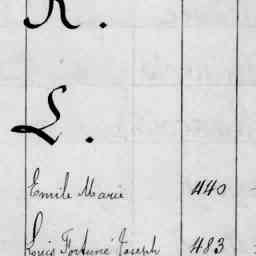 K.
L.
Emile Marie 440
Louis Fortuné Joseph 483